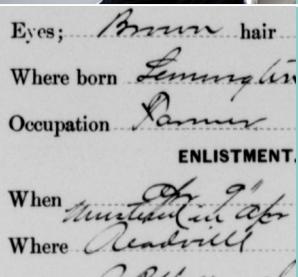 Eyes; Brown hair
Where born Lemington
Occupation Farmer
ENLISTMENT.
When Apr 9"
Mustered in Apr
Where Readville